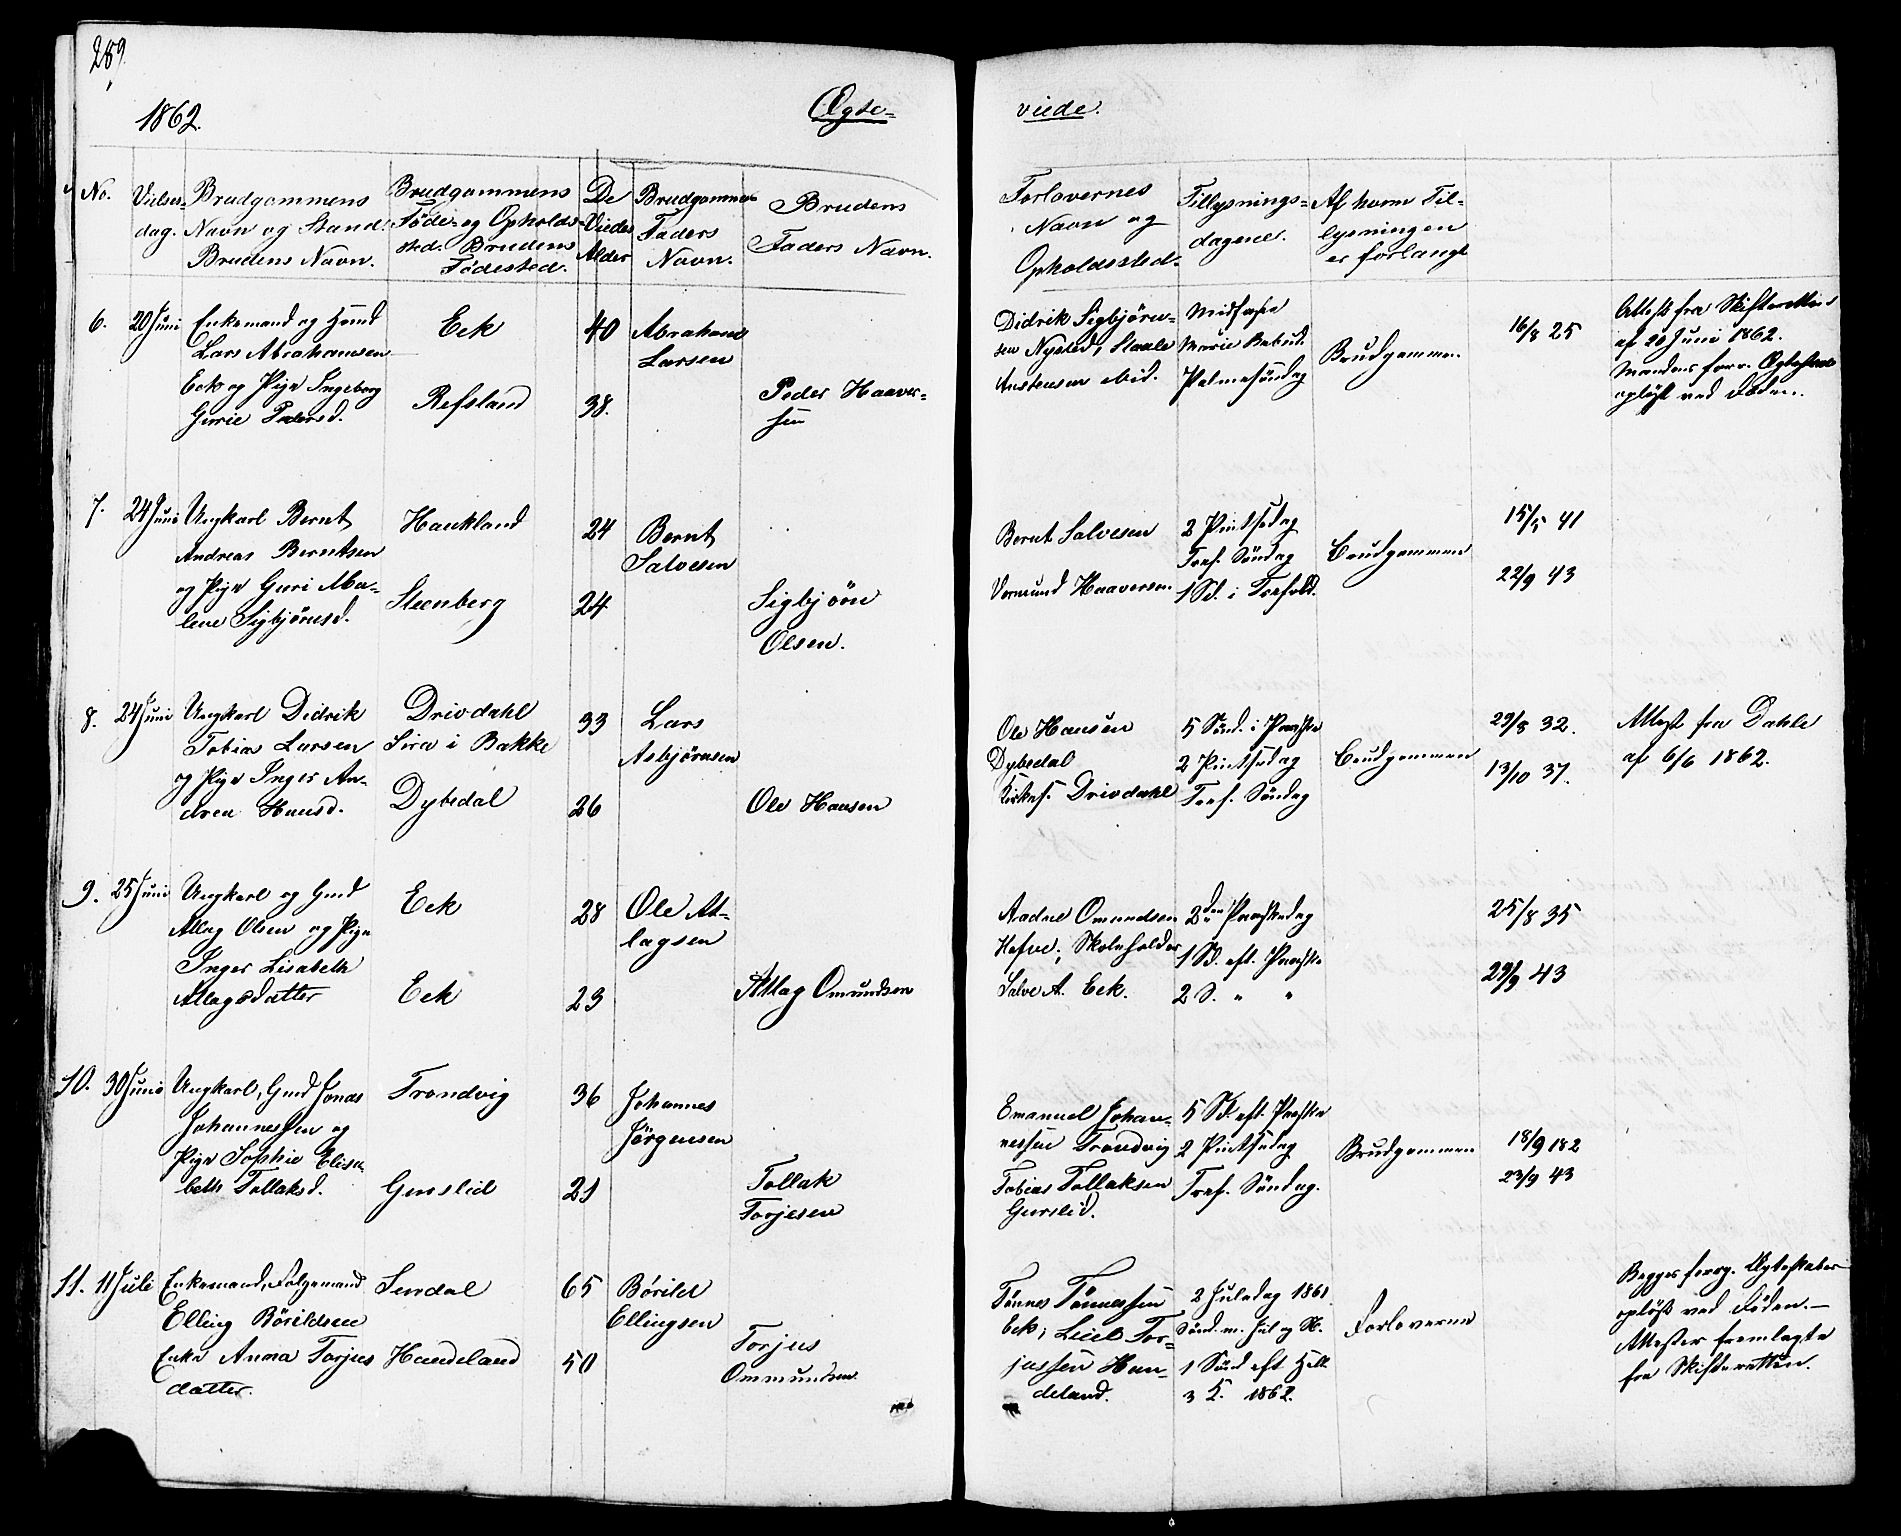 289.
1862.
Ægte-
viede.
No.
Vielses-
dag.
Brudgommens
Navn og Stand.
Brudens Navn.
Brudgommens
Føde- og Opholds-
sted. Brudens
Fødested.
De
Viedes
Alder
Brudgommens
Faders
Navn.
Brudens
Faders Navn.
Forlovernes
Navn og
Opholdssted.
Tillysnings-
dagene.
Af hvem Til-
lysningen
er forlangt
6.
20 Juni
Enkemand og
Lars Abrahamsen
Eek og Pige Ingeborg
Gurie Pedersd.
Eek
Refsland
40
38.
Abraham
Larsen
Peder Haaver-
sen
Didrik Sigbjörn-
sen Nysted,
Austensen ibid.
Midfaste
Marie Bebud.
Palmesöndag
Brudgommen
16/8 25
Attest fra Skifteretten
af 20 Juni 1862.
Mandens forr. Ægteskab
oplöst ved Döden.
7.
24 Juni
Ungkarl Bernt
Andreas Berntsen
og Pige Guri Ma-
lene Sigbjörnsd.
Haukland
Steenberg
24
24
Bernt
Salvesen
Sigbjörn
Olsen.
Bernt Salvesen
Haaversen
2 Pintsedag
Tref. Söndag
1 Sd. i Trefold.
Brudgommen
15/5 41
22/9 43
8.
24 Juni
Ungkarl Didrik
Tobias Larsen
og Pige Inger An-
drea Hansd.
Drivdahl
Sira i Bakke
Dybedal
33
26
Lars
Asbjörnsen
Ole Hansen
Ole Hansen
Dybedal
Kirkes. Drivdahl
5 Sönd. i Paaske
2 Pintsedag
Tref. Söndag
Brudgommen
29/8 32.
13/10 37.
Attest fra Dahle
af 6/6 1862.
9.
25 Juni
Ungkarl og Gmd
Atlag Olsen og Pige
Inger Lisabeth
Atlagsdatter
Eek
Eek
28
23
Ole At-
lagsen
Atlag Omundsen
Aadne Omundsen
Refve; Skoleholder
Salve A. Eek.
2den Paaskedag
1 Sd. eft. Paaske
2 S. " "
25/8 35
29/9 43
10.
30 Juni
Ungkarl, Gmd Jonas
Johannessen og
Pige Sophie Elisa-
beth Tollaksd.
Trondvig
Gurslid
36
21
Johannes
Jörgensen
Tollak
Torjesen
Emanuel Johan-
nessen Trondvig
Tobias Tollaksen
Gurslid.
5 Sd. eft. Paaske
2 Pintsedag
Tref. Söndag.
Brudgommen
18/9 182
23/9 43
11.
11 Juli
Enkemand, Folgemand
Elling Börildsen
Enke Anna Torjus
datter.
Sendal
Handeland
65
50
Börild
Ellingsen
Torjus
Ommundsen
Tönnes Tönnessen
Eek; Leiel Tor-
jussen Han-
deland.
2 Juledag 1861
Sönd. m. Jul og N.
1 Sönd eft. Hell.
3 K. 1862.
Forloverne
Begges forrg. Ægteskaber
oplöst ved Döden.—
Attester fremlagte
fra Skifteretten.